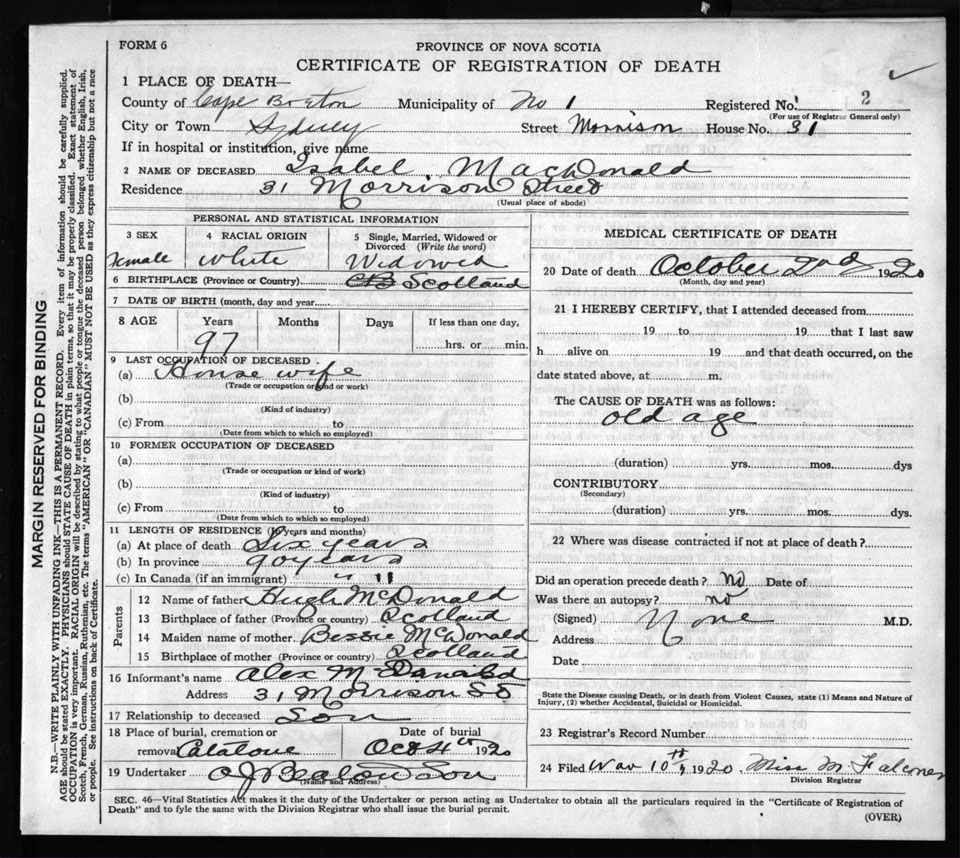 FORM 6
PROVINCE OF NOVA SCOTIA
CERTIFICATE OF REGISTRATION OF DEATH
1 PLACE OF DEATH—
County of Cape Breton Municipality of No 1 Registered No. 2
(For use of Registrar General only)
City or Town Sydney Street Morrison House No. 31
If in hospital or institution, give name
2 NAME OF DECEASED Isabel MacDonald
Residence 31 Morrison Street
(Usual place of abode)
PERSONAL AND STATISTICAL INFORMATION
3 SEX 4 RACIAL ORIGIN 5 Single, Married, Widowed or Divorced (Write the word)
Female White Widowed
6 BIRTHPLACE (Province or Country) CB Scotland
7 DATE OF BIRTH (month, day and year)
8 AGE Years Months Days If less than one day,
97 hrs. or min.
9 LAST OCCUPATION OF DECEASED
(a) House wife
(Trade or occupation or kind or work)
(b)
(Kind of industry)
(c) From to
(Date from which to which so employed)
10 FORMER OCCUPATION OF DECEASED
(a)
(Trade or occupation or kind of work)
(b)
(Kind of industry)
(c) From to
(Date from which to which so employed)
11 LENGTH OF RESIDENCE (in years and months)
(a) At place of death Six years
(b) In province 90 years
(c) In Canada (if an immigrant) " "
Parents
12 Name of father Hugh McDonald
13 Birthplace of father (Province or country) Scotland
14 Maiden name of mother Bessie McDonald
15 Birthplace of mother (Province or country) Scotland
16 Informant's name Alex McDonald
Address 31 Morrison St
17 Relationship to deceased Son
18 Place of burial, cremation or removal Catalone Date of burial Oct 4th 1920
19 Undertaker & Son
(Name and Address)
MEDICAL CERTIFICATE OF DEATH
20 Date of death October 2nd 1920
(Month, day and year)
21 I HEREBY CERTIFY, that I attended deceased from
19 to 19 that I last saw
h alive on 19 and that death occurred, on the
date stated above, at m.
The CAUSE OF DEATH was as follows:
old age
(duration) yrs. mos. dys
CONTRIBUTORY
(Secondary)
(duration) yrs. mos. dys.
22 Where was disease contracted if not at place of death?
Did an operation precede death? No Date of
Was there an autopsy? no
(Signed) None M.D.
Address
Date
State the Disease causing Death, or in death from Violent Causes, state (1) Means and Nature of
Injury, (2) whether Accidental, Suicidal or Homicidal.
23 Registrar's Record Number
24 Filed Nov 10th, 1920 Miss M Falconer
Division Registrar
SEC. 46—Vital Statistics Act makes it the duty of the Undertaker or person acting as Undertaker to obtain all the particulars required in the "Certificate of Registration of
Death" and to fyle the same with the Division Registrar who shall issue the burial permit.
(OVER)
MARGIN RESERVED FOR BINDING
N.B.—WRITE PLAINLY WITH UNFADING INK—THIS IS A PERMANENT RECORD. Every item of information should be carefully supplied.
AGE should be stated EXACTLY. PHYSICIANS should STATE CAUSE OF DEATH in plain terms, so that it may be properly classified. Exact statement of
OCCUPATION is very important. RACIAL ORIGIN will be described by stating to what people or tongue the deceased person belonged whether English, Irish,
Scotch, French, German, Russian, Ruthenian, etc. The terms "AMERICAN" OR "CANADIAN" MUST NOT BE USED as they express citizenship but not a race
or people. See instructions on back of Certificate.